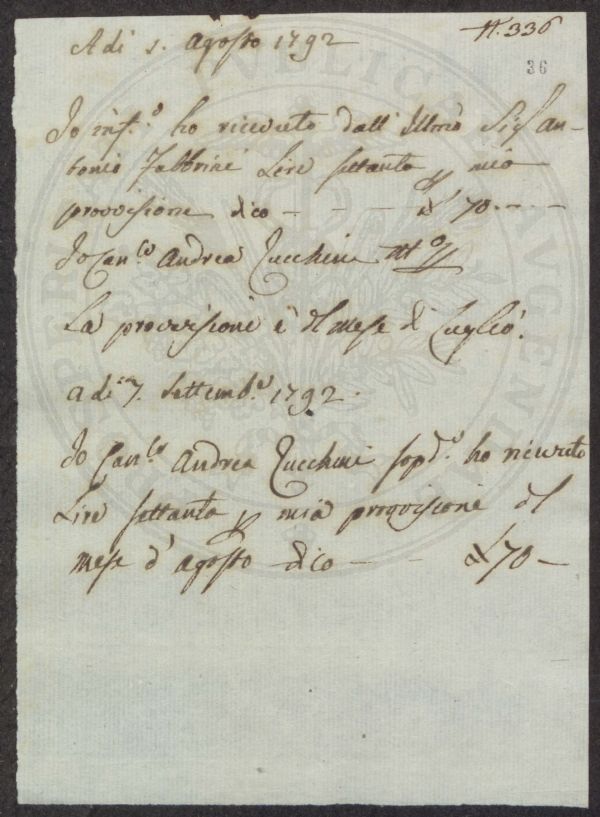 Adi 1. Agosto 1792
N. 336
36
Io inf.o ho ricevuto dall' Illmo Sig. An-
tonio Fabbrini Lire settanta p mia
provvisione dico - - - £ 70 - - -
Io Can.co Andrea Zucchini
La provvisione è del mese di Luglio.
adi 7. Settemb.e 1792.
Io Can.co Andrea Zucchini sopd.o ho ricevuto
Lire settanta p mia provvisione del
mese d'agosto dico - - - £ 70 -